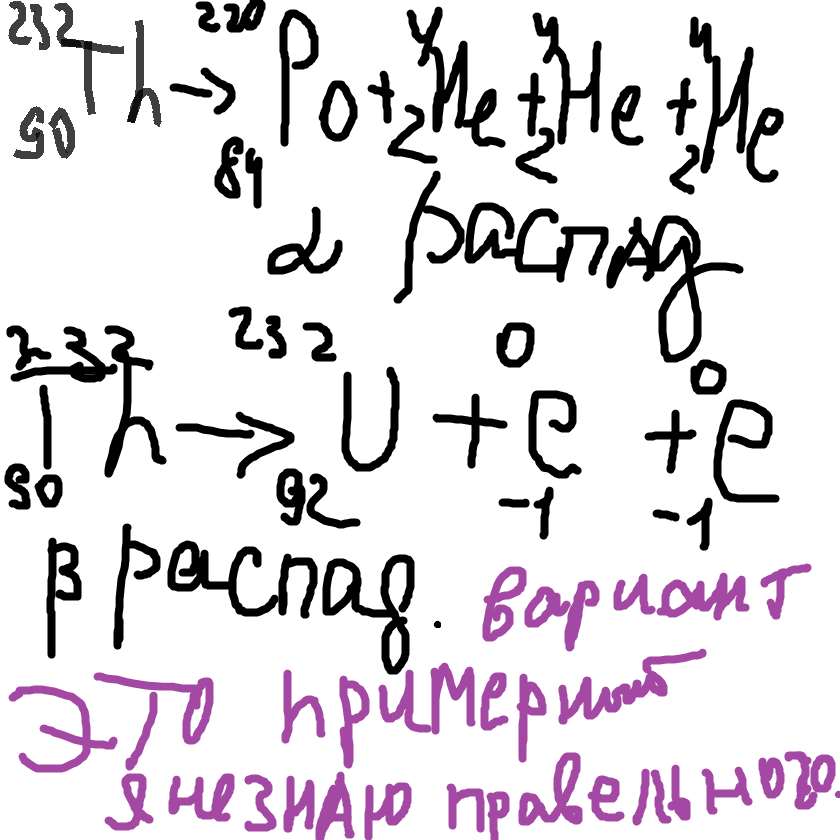 ²³²₉₀Th → ²²⁰₈₄Po + ⁴₂He + ⁴₂He + ⁴₂He
α распад
²³²₉₀Th → ²³²₉₂U + ⁰₋₁e + ⁰₋₁e
β распад.
вариант
Это примерной
я незнаю правельного.